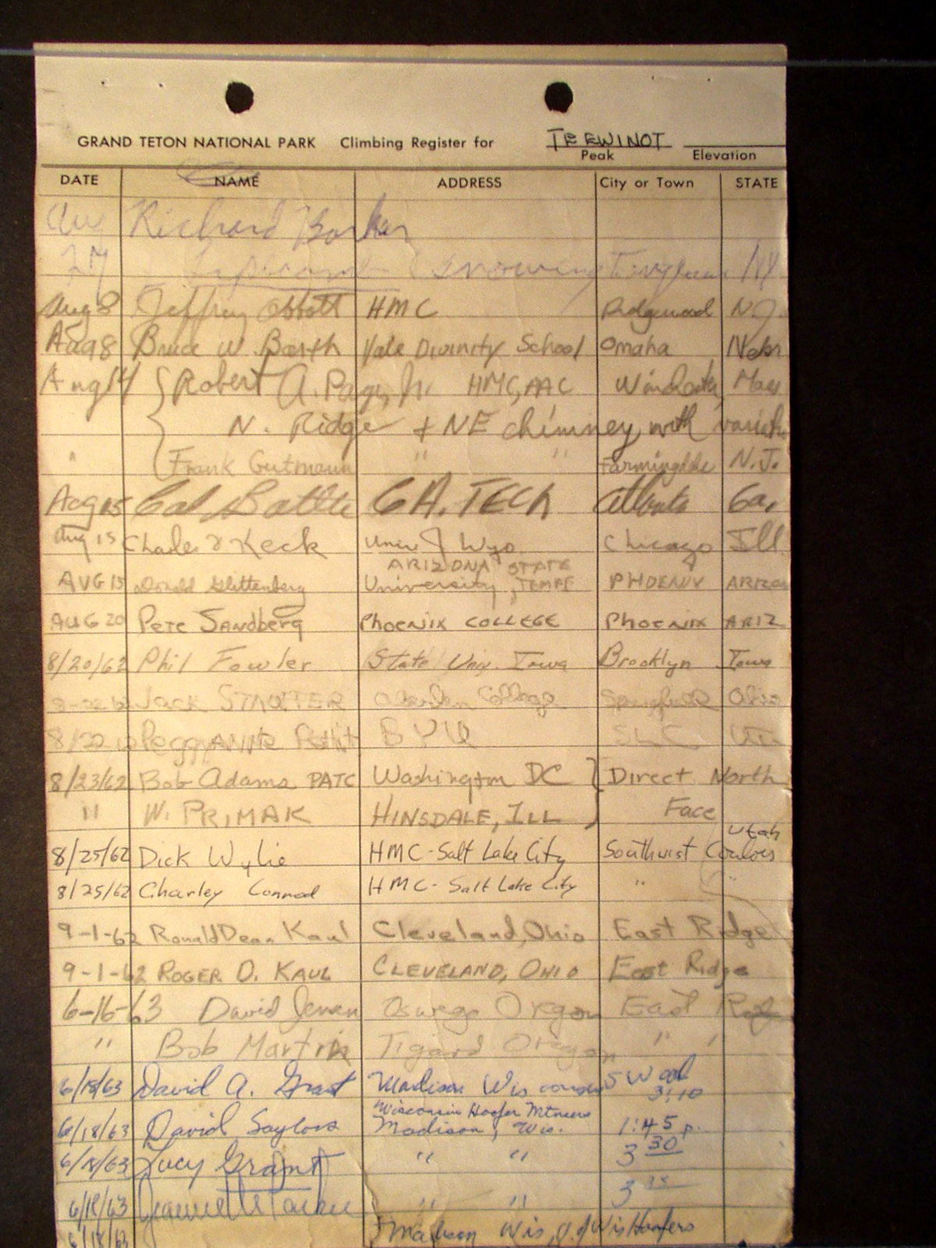 GRAND TETON NATIONAL PARK Climbing Register for TEEWINOT
Peak Elevation
DATE NAME ADDRESS City or Town STATE
Aug Richard
27 Snowing
Aug 8 Jeffrey HMC Ridgewood NJ
Aug 8 Bruce W. Barth Yale Divinity School Omaha Nebr
Aug 14 Robert A. Page, Jr. HMC, AAC Winchester, Mass
N. Ridge + NE chimney with
" Frank Gutmann " " Farmingdale N.J.
Aug 15 GA. TECH Atlanta Ga.
Aug 15 Charles Keck Univ of Wyo Chicago Ill
ARIZONA STATE
AUG 15 Donald Glittenberg University, TEMPE PHOENIX ARIZONA
AUG 20 PETE SANDBERG PHOENIX COLLEGE PHOENIX ARIZ
8/20/62 Phil Fowler State Univ. Iowa Brooklyn Iowa
JACK College Springfield Ohio
BYU SLC
8/23/62 Bob Adams PATC Washington DC } Direct North
" W. PRIMAK HINSDALE, ILL Face
Utah
8/25/62 Dick Wylie HMC-Salt Lake City Southwest
8/25/62 Charley Connod HMC-Salt Lake City "
9-1-62 Ronald Dean Kaul Cleveland, Ohio East Ridge
9-1-62 ROGER D. KAUL CLEVELAND, OHIO East Ridge
6-16-63 David Jensen Oswego Oregon East Ridge
" Bob Martin Tigard Oregon " "
6/18/63 David A. Grant Madison Wis
3:10
Wisconsin Hoofer Mtneers
6/18/63 David Saylors Madison, Wis. 1:45 P.
6/18/63 Lucy Grant " " 3 30
6/18/63 " " 3
6/18/63 Madison Wis Hoofers